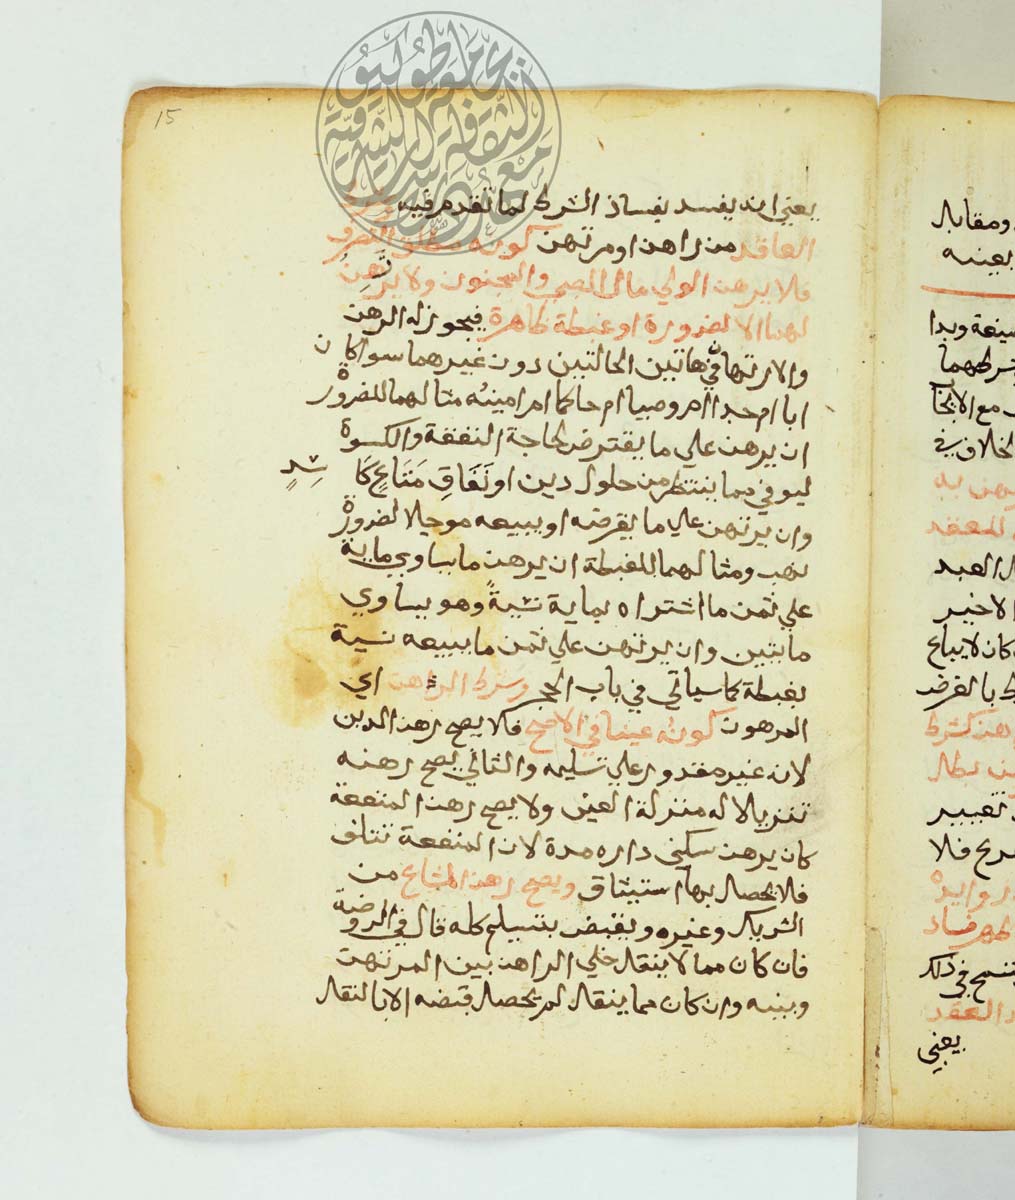 15
يعني انه يفسد بفساد الشرط لما تقدم فيه وشرط
العاقد من راهن او مرتهن كونه مطلق التصرف
فلا يرهن الولي مال الصبي والمجنون ولا يرتهن
لهما الا لضرورة او غبطة ظاهرة فيجوز له الرهن
والارتهان في هاتين الحالتين دون غيرهما سوا كان
ابا ام جدا ام وصيا ام حاكما ام امينه مثالهما للضرورة
ان يرهن علي ما يقترض لحاجة النفقة والكسوة
ليوفي مما ينتظر من حلول دين او نَفَاقِ مَتَاعٍ كَاسِدٍ
وان يرتهن علي ما يقرضه او يبيعه موجلا لضرورة
نهب ومثالهما للغبطة ان يرهن ما يساوي ماية
علي ثمن ما اشتراه بماية نسيةً وهو يساوي
مايتين وان يرتهن علي ثمن ما يبيعه نسية
بغبطة كما سياتي في باب الحجر وشرط الرهن اي
المرهون كونه عينا في الاصح فلا يصح رهن الدين
لانه غير مقدور علي تسليمه والثاني يصح رهنه
تنزيلا له منزلة العين ولا يصح رهن المنفعة
كان يرهن سكني داره مدة لان المنفعة تتلف
فلا يحصل بها استيثاق ويصح رهن المشاع من
الشريك وغيره ويقبض بتسليم كله قال في الروضة
فان كان مما لا ينقل خلي الراهن بين المرتهن
وبينه وان كان مما ينقل لم يحصل قبضه الا بالنقل
ومقابل
بعينه
وبدا
مع
الخلاف في
يرهن به
للعقد
العبد
الاخير
كان لا يباع
بالقرض
كشرط
بطل
تغيير
فلا
زوايده
فساد
في ذلك
العقد
يعني